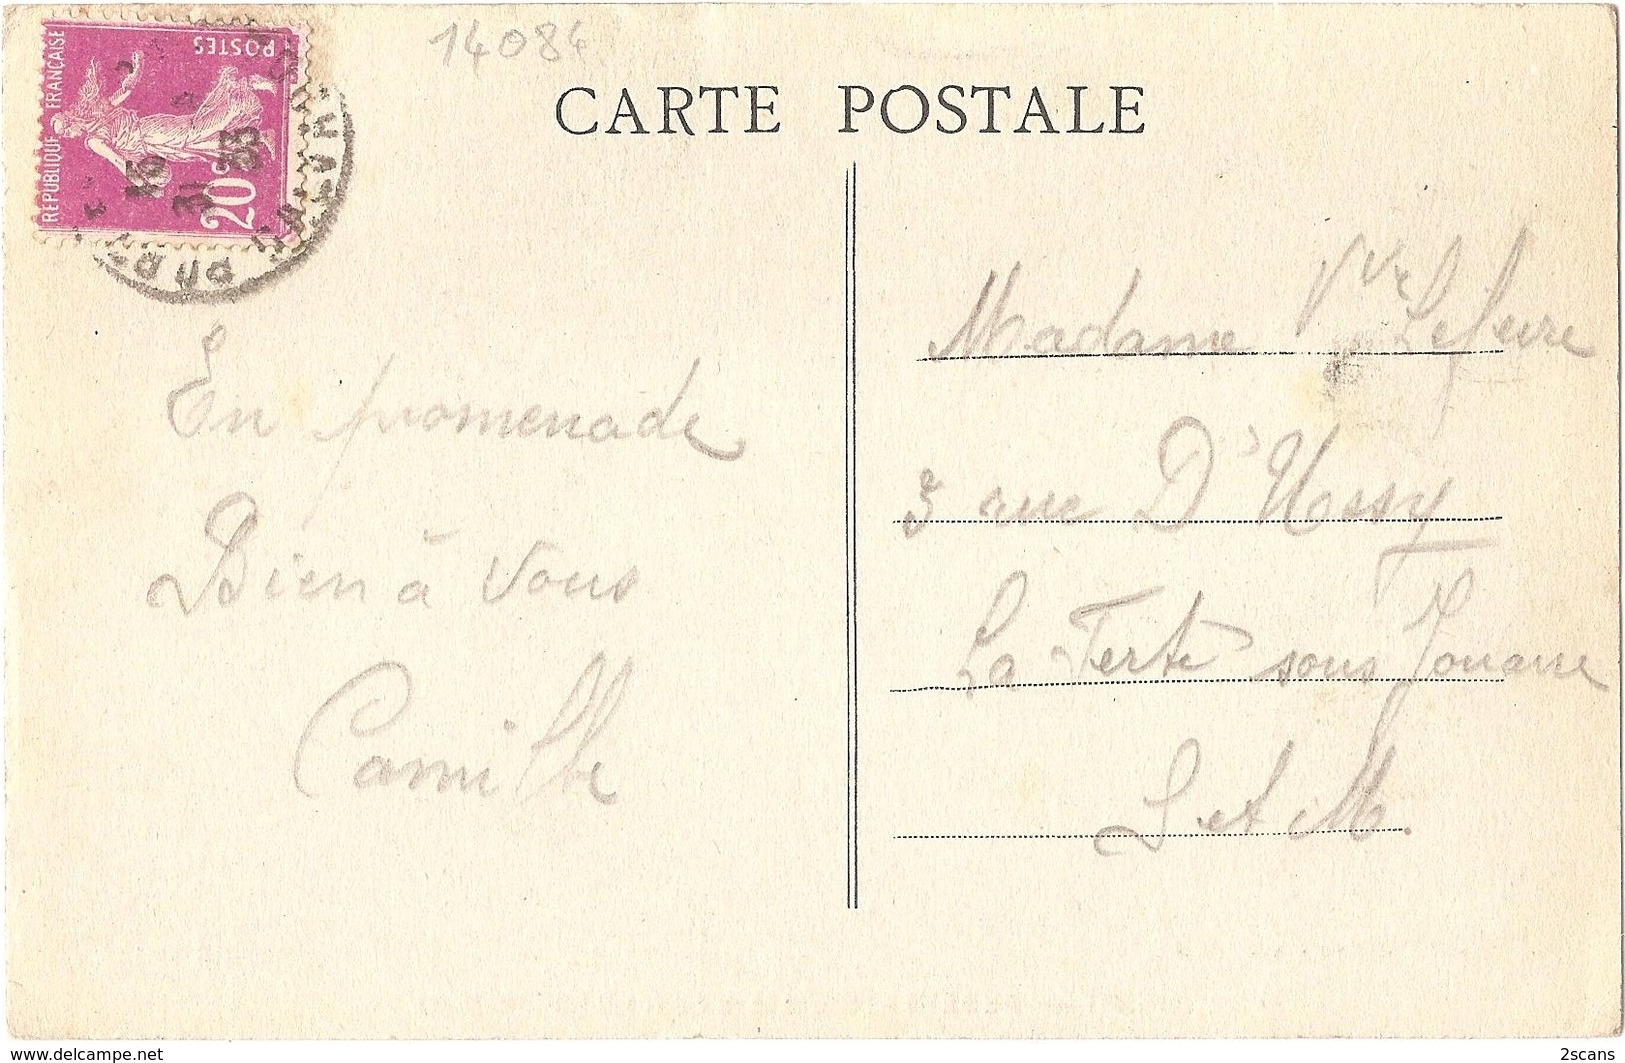 14084
CARTE POSTALE
POSTES
REPUBLIQUE FRANÇAISE
20c
16
31 4
33
En promenade
Bien à vous
Camille
Madame Vve Lefevre
3 rue D'Ussy
La Ferté sous Jouarre
S et M.
www.delcampe.net
2scans